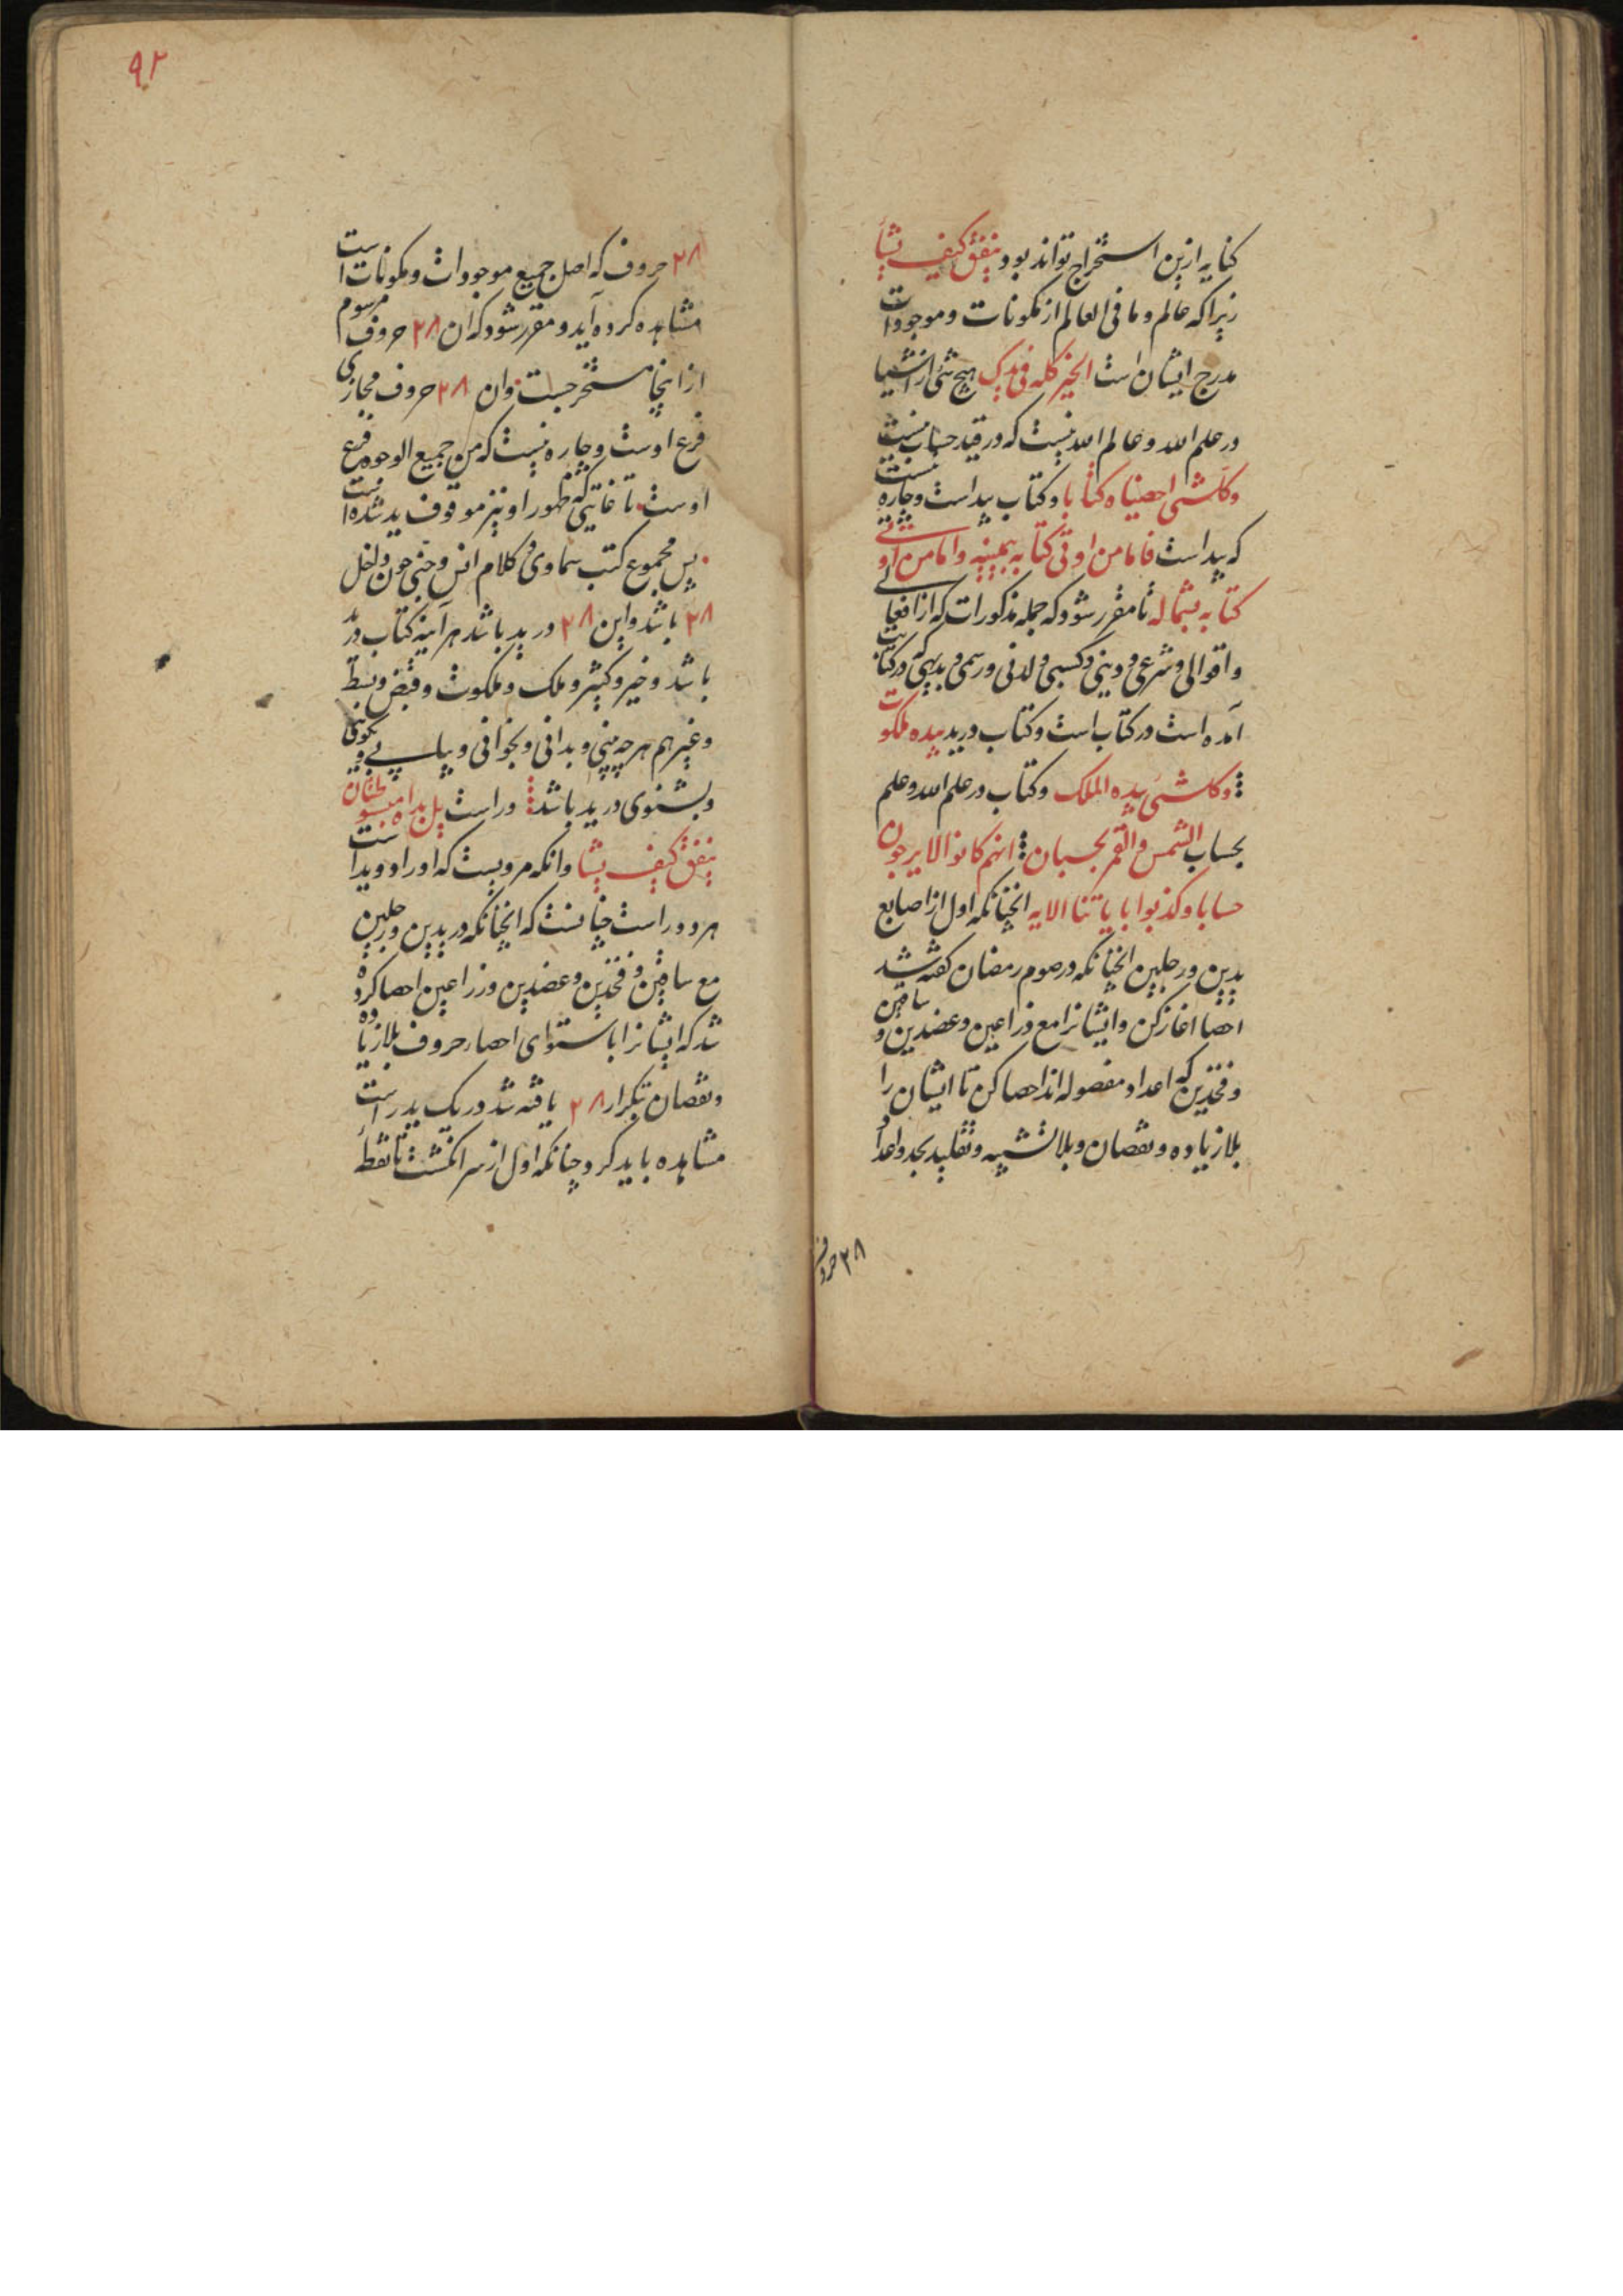 کنایه ازین استخراج تواند بود ینفق کیف یشآ
زیرا که عالم و ما فی العالم از مکونات و موجودات
مدرج ایشان است الخیر کله فی یدیک هیچ شی از اشیا
در علم الله و عالم الله نیست که در قید حساب نیست
وکل شی احصیناه کتابا و کتاب بید است و چاره نیست
که بید است فاما من اوتی کتابه بیمینه واما من اوتی
کتابه بشماله تا مقرر شود که جمله مذکورات که از افعالی
و اقوالی و شرعی و دینی و کسبی و لدنی و رسمی و بدیهی که در کتابت
آمده است در کتاب است و کتاب در ید بیده ملکوت
وکل شی بیده الملک و کتاب در علم الله و علم
بحساب الشمس والقمر بحسبان انهم کانوا لا یرجون
حسابا وکذبوا بایاتنا الایه انچنانکه اول از اصابع
یدین و رجلین انچنانکه در صوم رمضان کفته شد
احصا اغاز کن و ایشانرا مع ذراعین و عضدین و ساقین
و فخذین که اعداد مفصوله اند احصا کن تا ایشان را
بلا زیاده و نقصان و بلا تشبیه و تقلید بحد و اعداد
۲۸ حروف
۹۲
۲۸ حروف که اصل جمیع موجودات و مکونات است
مشاهده کرده آید و مقرر شود که آن ۲۸ حروف مرسوم
از اینجا مستخرجست وان ۲۸ حروف مجازی
فرع اوست و چاره نیست که من جمیع الوجوه فرع
اوست تا غایتی که ظهور او نیز موقوف ید شده است
پس مجموع کتب سماوی و کلام انس و جنی چون داخل
۲۸ باشد و این ۲۸ در ید باشد هر آینه کتاب در ید
باشد و خیر و کثیر و ملک و ملکوت و قبض و بسط
و غیرهم هر چه بینی و بدانی و بخوانی و بیابی و بکوئی
و بشنوی در ید باشد و راست بل یداه مبسوطتان
ینفق کیف یشا وانکه مرویست که او را دو ید است
هر دو راست چنانست که انچنانکه در یدین و رجلین
مع ساقین و فخذین و عضدین و زراعین احصا کرده
شد که ایشانرا باستوای احصاء حروف بلا زیاده
و نقصان تکرار ۲۸ یافته شد در یک ید راست
مشاهده باید کرد و چنانکه اول از سر انکشت تا نقطه